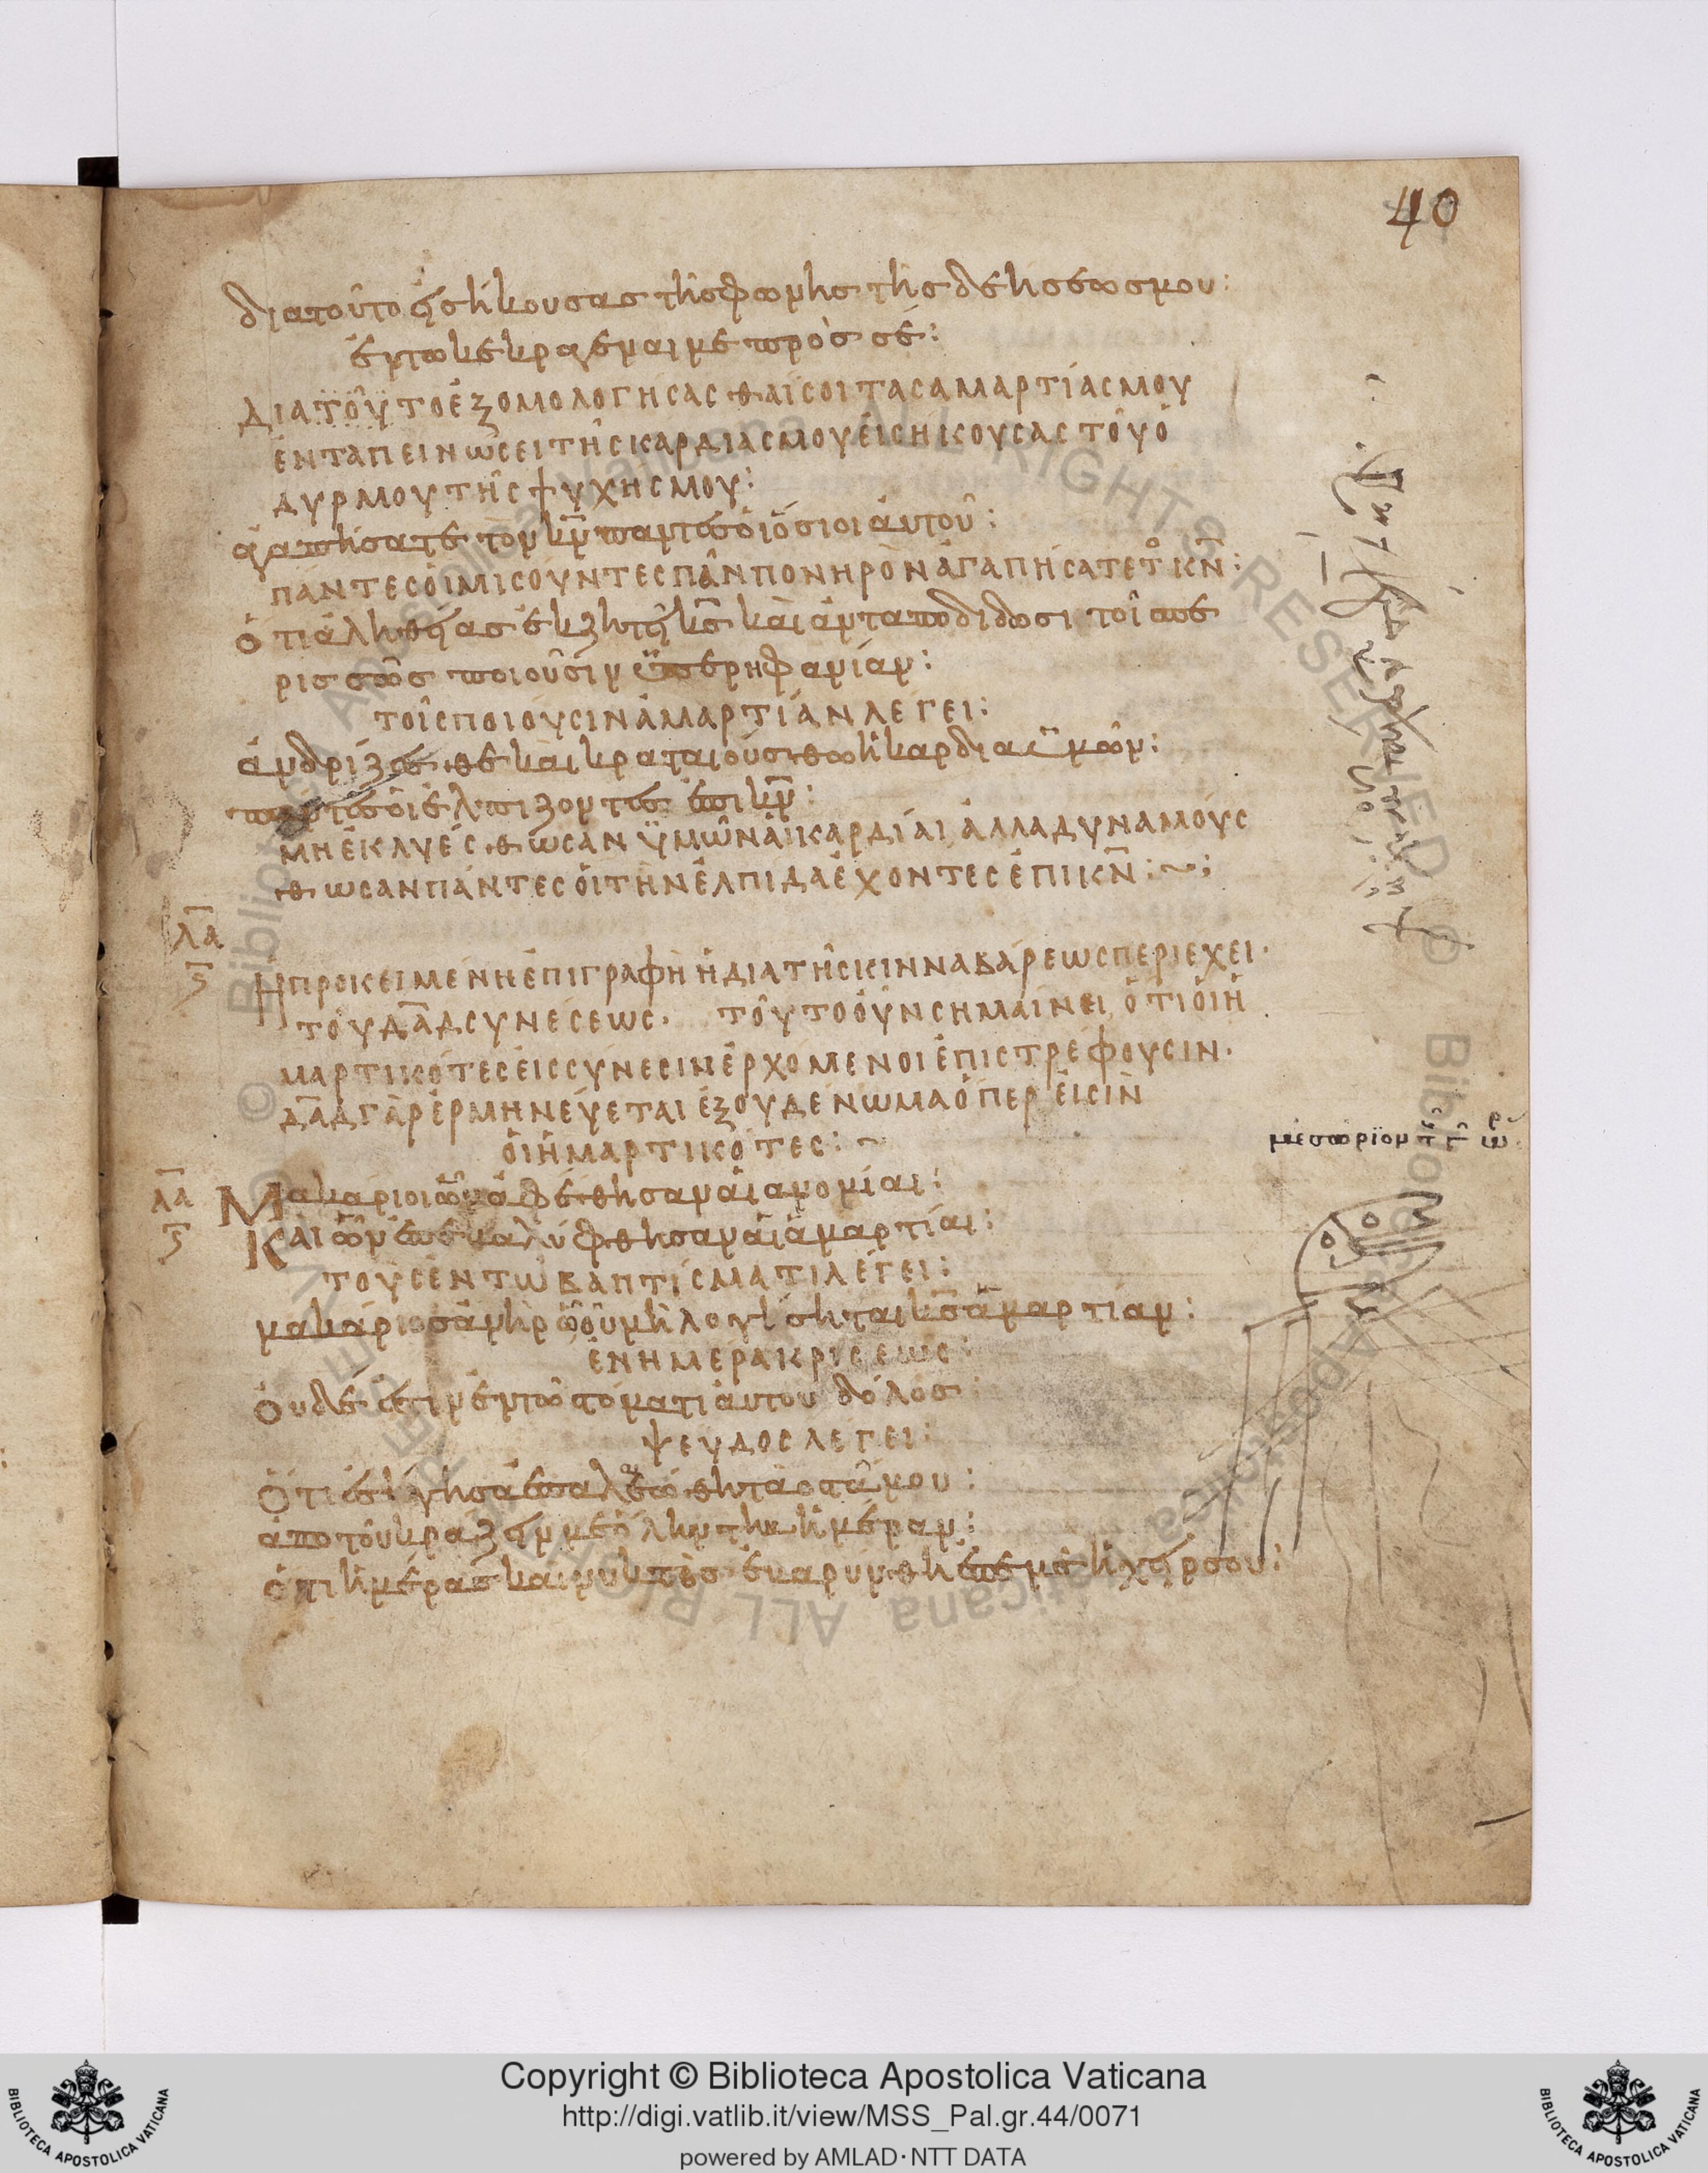 40
διατοῦτο εἰσήκουσας τῆς φωνῆς τῆς δεήσεως μου:
ἐν τῶ κεκραγέναι με πρὸς σέ:
ΔΙΑΤΟΥΤΟ ἐΞΟΜΟΛΟΓΗCΑCΘΑΙ CΟΙ ΤΑC ΑΜΑΡΤΙΑC ΜΟΥ
ἐΝ ΤΑΠΕΙΝΩCΕΙ ΤῆC ΚΑΡΔΙΑC ΜΟΥ ΕἰCΗΚΟΥCΑC ΤΟῦ ὀ
ΔΥΡΜΟΥ ΤῆC ΨΥΧΗC ΜΟΥ:
ἀγαπήσατε τὸν κ̅ν̅ πάντες οἱ ὅσιοι ἀυτοῦ:
ΠΑΝΤΕC Οἱ ΜΙCΟΥΝΤΕC ΠᾶΝ ΠΟΝΗΡὸΝ ἀΓΑΠΗCΑΤΕ Τὸ Κ̅Ν̅:
ὅτι ἀληθείας ἐκζητεῖ κ̅ς̅ καὶ ἀνταποδίδωσι τοῖς πε
ρισσῶς ποιοῦσιν ὑπερηφανίαν:
ΤΟῖC ΠΟΙΟΥCΙΝ ἁΜΑΡΤΙΑΝ ΛΕΓΕΙ:
ἀνδρίζεσθε καὶ κραταιούσθω ἡ καρδία ὑμῶν:
πάντες οἱ ἐλπίζοντες ἐπι κ̅ν̅:
ΜΗ ἐΚΛΥΕCΘΩCΑΝ ὑΜῶΝ Αἱ ΚΑΡΔΙΑΙ ἀΛΛΑ ΔΥΝΑΜΟΥC
ΘΩCΑΝ ΠΑΝΤΕC Οἱ ΤὴΝ ἐΛΠΙΔΑ ἔΧΟΝΤΕC ἐΠΙ Κ̅Ν̅:~:
λ̅α̅
ς̅ Η ΠΡΟΚΕΙΜΕΝΗ ἐΠΙΓΡΑΦὴ ἡ ΔΙΑ ΤῆC ΚΙΝΝΑΒΑΡΕΩC ΠΕΡΙΕΧΕΙ·
ΤΟΥ Δ̅Α̅Δ̅ CΥΝΕCΕΩC· ΤΟῦΤΟ ΟὖΝ CΗΜΑΙΝΕΙ ὅΤΙ Οἱ ἡ
ΜΑΡΤΙΚΟΤΕC ΕἰC CΥΝΕCΙΝ ἐΡΧΟΜΕΝΟΙ ἐΠΙCΤΡΕΦΟΥCΙΝ·
Δ̅Α̅Δ̅ ΓὰΡ ἑΡΜΗΝΕΥΕΤΑΙ ἐΞΟΥΔΕΝΩΜΑ ὅΠΕΡ ΕἰCὶΝ
Οἱ ἡΜΑΡΤΙΚΟΤΕC:~
μεσωριον
λ̅α̅ Μακάριοι ὧν ἀφέθησαν αἱ ἀνομίαι:
ς̅ Και ὧν ἐπεκαλύφθησαν αἱ ἁμαρτίαι:
ΤΟΥC ἐΝ Τῶ ΒΑΠΤΙCΜΑΤΙ ΛΕΓΕΙ:
μακάριος ἀνὴρ ὧ οὐ μὴ λογίσηται κ̅ς̅ ἁμαρτίαν:
ἐΝ ΗΜΕΡΑ ΚΡΙCΕΩC:
ὀυδέ ἐστιν ἐν τῶ στόματι ἀυτοῦ δόλος:
ΨΕΥΔΟC ΛΕΓΕΙ:
Ὅτι ἐσίγησα ἐπαλαιώθη τα οστᾶ μου:
ἀπὸ τοῦ κράζειν με ὅλην την ἡμέραν:
ὅτι ἡμέρας και νυκτὸς ἐβαρύνθη ἐπ' ἐμὲ ἡ χείρ σου:
Copyright © Biblioteca Apostolica Vaticana
http://digi.vatlib.it/view/MSS_Pal.gr.44/0071
powered by AMLAD·NTT DATA
BIBLIOTECA APOSTOLICA VATICANA
BIBLIOTECA APOSTOLICA VATICANA